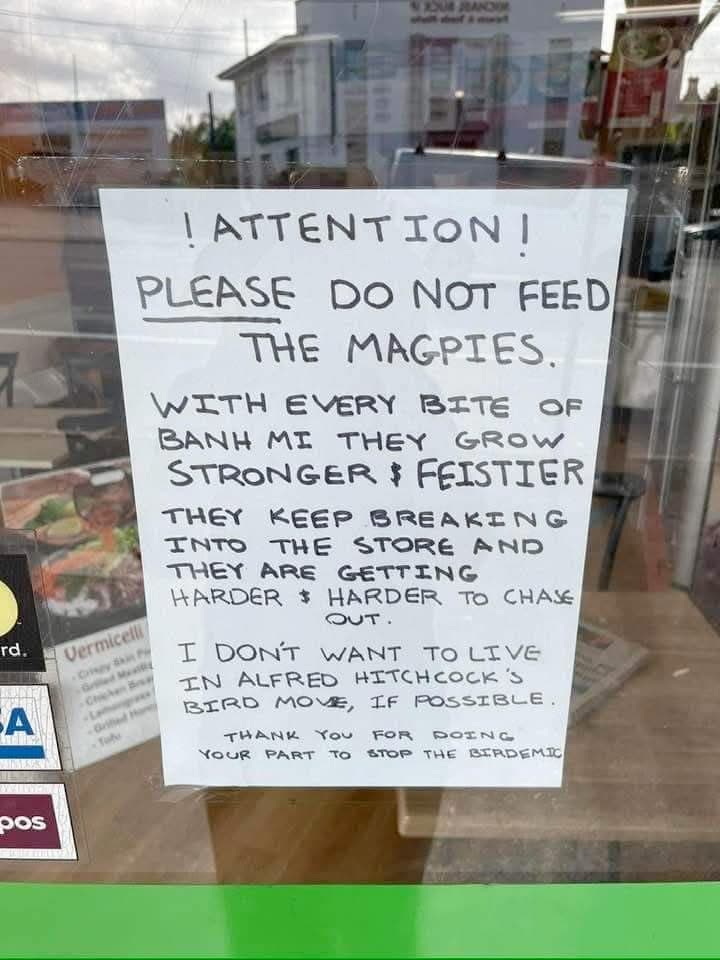 ! ATTENTION !
PLEASE DO NOT FEED
THE MAGPIES.
WITH EVERY BITE OF
BANH MI THEY GROW
STRONGER & FEISTIER
THEY KEEP BREAKING
INTO THE STORE AND
THEY ARE GETTING
HARDER & HARDER TO CHASE
OUT.
I DON'T WANT TO LIVE
IN ALFRED HITCHCOCK'S
BIRD MOVE, IF POSSIBLE.
THANK YOU FOR DOING
YOUR PART TO STOP THE BIRDEMIC
rd.
Vermicelli
Tofu
A
pos